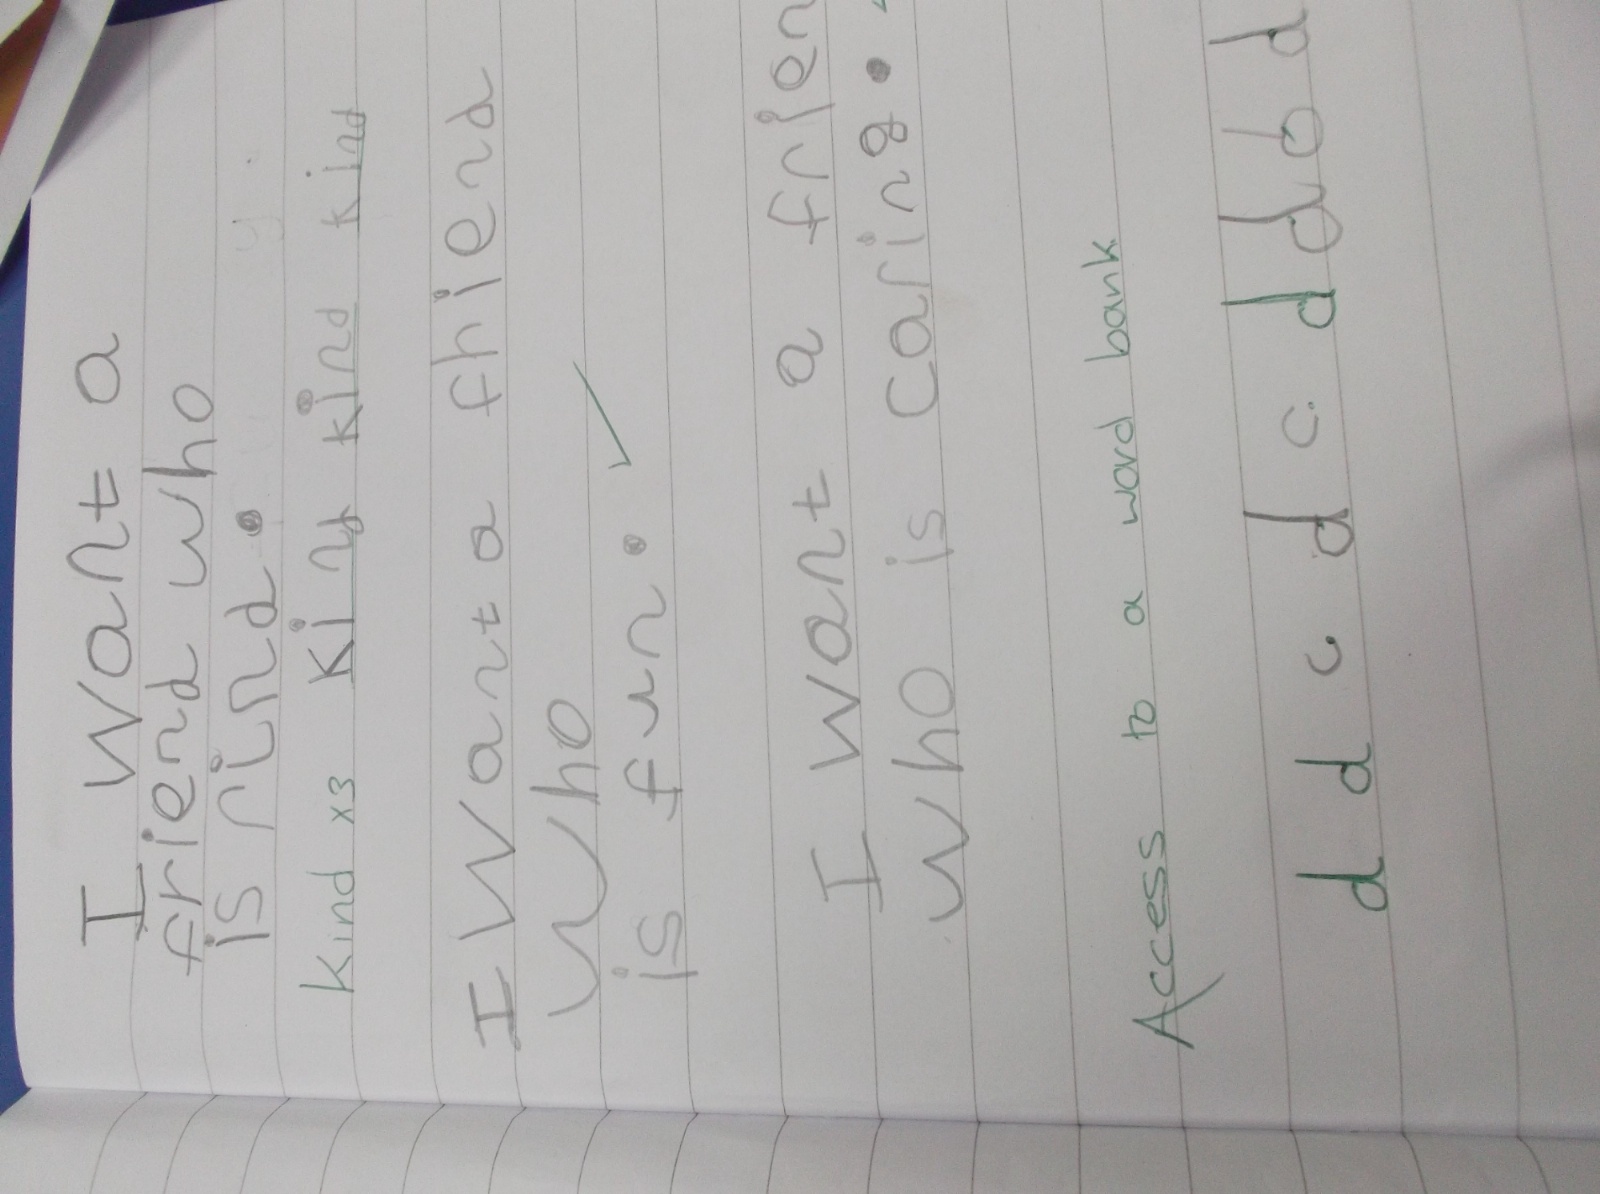 I want a
friend who
is rind.
kind x3 kind kind kind
I want a fhiend
who
is fun.
I want a frien
who is caring.
Access to a word bank
d d c d c d d d d